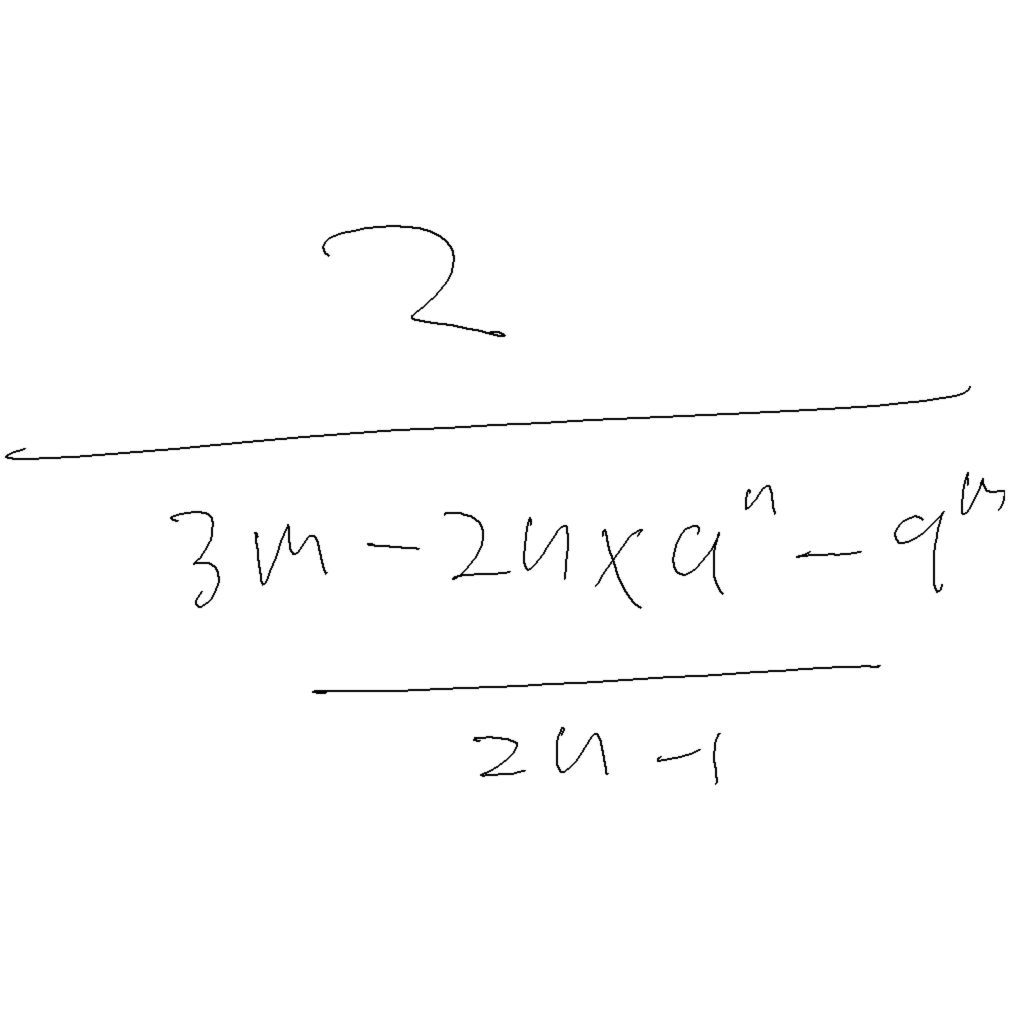 2
3m - 2n x a^n - q^m
2n - 1